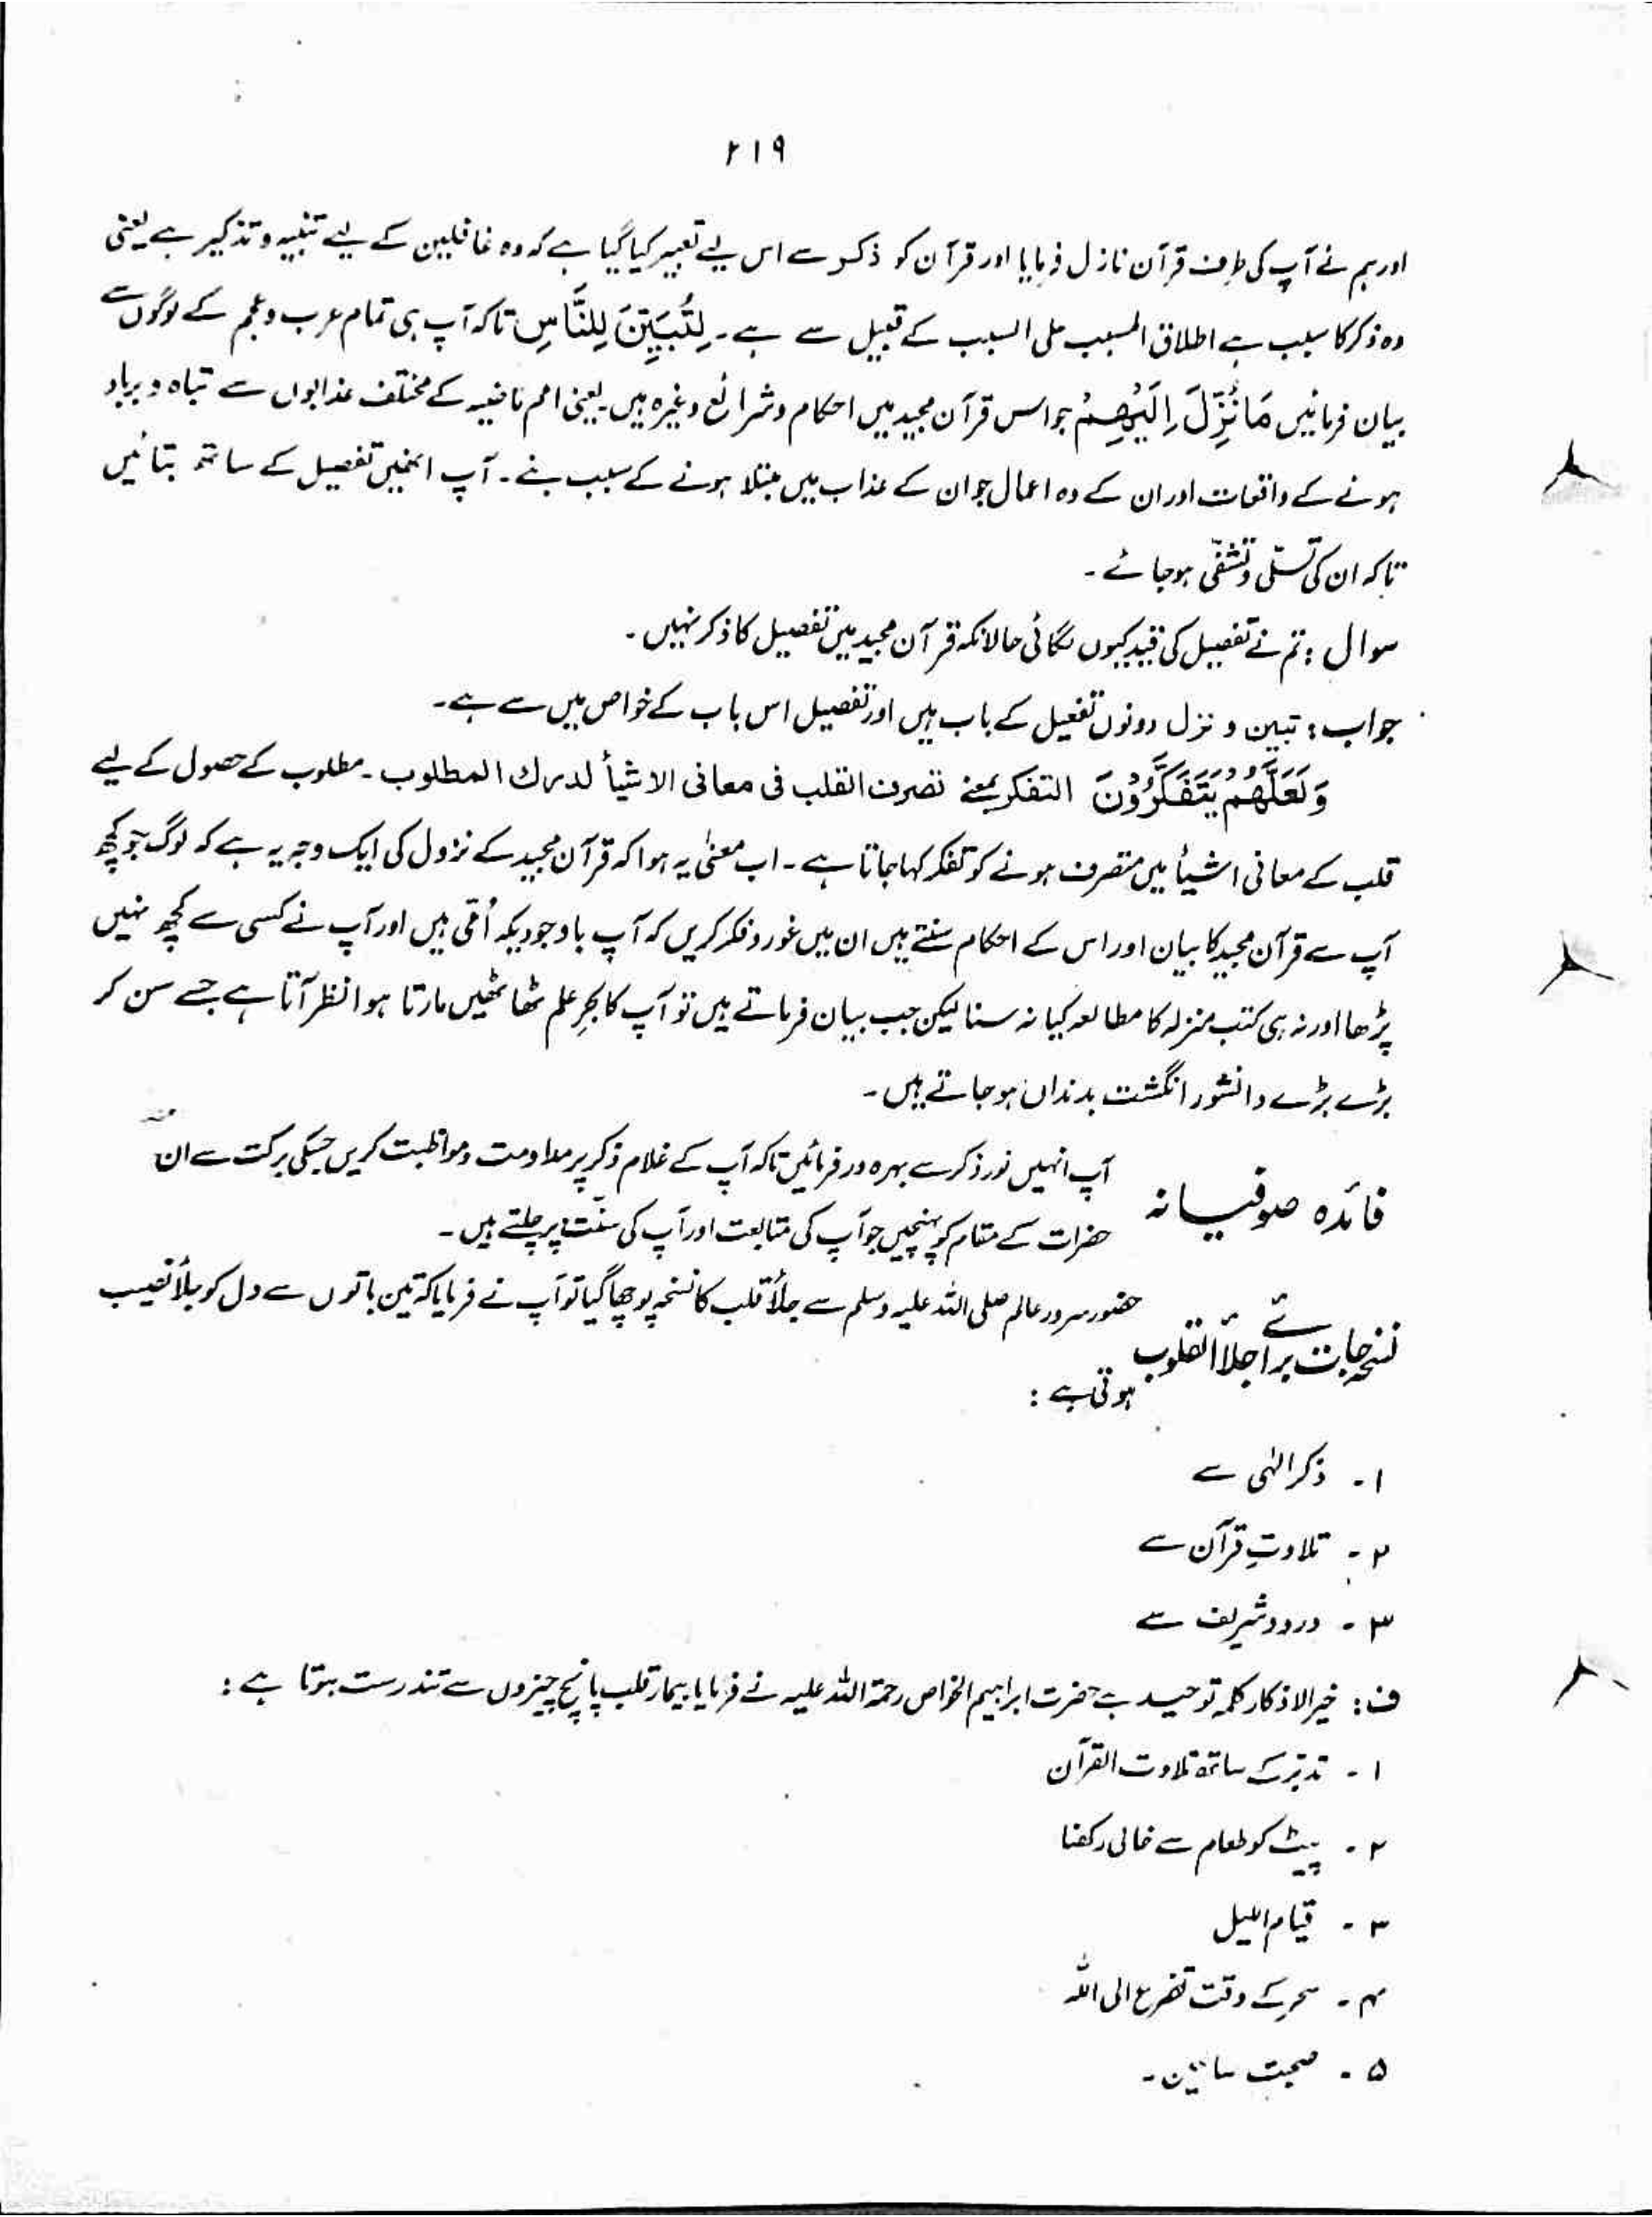 ۲۱۹
اور ہم نے آپ کی طرف قرآن نازل فرمایا اور قرآن کو ذکر سے اس لیے تعبیر کیا گیا ہے کہ وہ غافلین کے لیے تنبیہ و تذکیر ہے یعنی
وہ ذکر کا سبب ہے اطلاق المسبب علی السبب کے قبیل سے ہے۔ لِتُبَيِّنَ لِلنَّاسِ تاکہ آپ ہی تمام عرب و عجم کے لوگوں سے
بیان فرمائیں مَا نُزِّلَ اِلَيْهِمْ جو اس قرآن مجید میں احکام و شرائع وغیرہ ہیں یعنی امم ماضیہ کے مختلف عذابوں سے تباہ و برباد
ہونے کے واقعات اور ان کے وہ اعمال جو ان کے عذاب میں مبتلا ہونے کے سبب بنے۔ آپ انھیں تفصیل کے ساتھ بتائیں
تاکہ ان کی تسلّی و تشفّی ہو جائے۔
سوال : تم نے تفصیل کی قید کیوں لگائی حالانکہ قرآن مجید میں تفصیل کا ذکر نہیں۔
جواب : تبین و نزل دونوں تفعیل کے باب ہیں اور تفصیل اس باب کے خواص میں سے ہے۔
وَلَعَلَّهُمْ يَتَفَكَّرُوْنَ التفکر بمعنے تصرف القلب فی معانی الاشیأ لدرك المطلوب۔ مطلوب کے حصول کے لیے
قلب کے معانی اشیأ میں متصرف ہونے کو تفکر کہا جاتا ہے۔ اب معنیٰ یہ ہوا کہ قرآن مجید کے نزول کی ایک وجہ یہ ہے کہ لوگ جو کچھ
آپ سے قرآن مجید کا بیان اور اس کے احکام سنتے ہیں ان میں غور و فکر کریں کہ آپ باوجودیکہ اُمّی ہیں اور آپ نے کسی سے کچھ نہیں
پڑھا اور نہ ہی کتب منزلہ کا مطالعہ کیا نہ سنا لیکن جب بیان فرماتے ہیں تو آپ کا بحرِ علم ٹھاٹھیں مارتا ہوا نظر آتا ہے جسے سن کر
بڑے بڑے دانشور انگشت بدنداں ہو جاتے ہیں۔
فائدہ صوفیانہ
آپ انہیں نورِ ذکر سے بہرہ ور فرمائیں تاکہ آپ کے غلام ذکر پر مداومت و مواظبت کریں جسکی برکت سے ان
حضرات کے مقام کو پہنچیں جو آپ کی متابعت اور آپ کی سنّت پر چلتے ہیں۔
نسخہ جات برائے جلأ القلوب
حضور سرور عالم صلی اللہ علیہ وسلم سے جلأ قلب کا نسخہ پوچھا گیا تو آپ نے فرمایا کہ تین باتوں سے دل کو جلأ نصیب
ہوتی ہے :
۱ ۔ ذکر الٰہی سے
۲ ۔ تلاوتِ قرآن سے
۳ ۔ درود شریف سے
ف : خیر الاذکار کلمہ توحید ہے حضرت ابراہیم الخواص رحمۃ اللہ علیہ نے فرمایا بیمار قلب پانچ چیزوں سے تندرست ہوتا ہے :
۱ ۔ تدبّر کے ساتھ تلاوت القرآن
۲ ۔ پیٹ کو طعام سے خالی رکھنا
۳ ۔ قیام اللیل
۴ ۔ سحر کے وقت تضرع الی اللہ
۵ ۔ صحبت